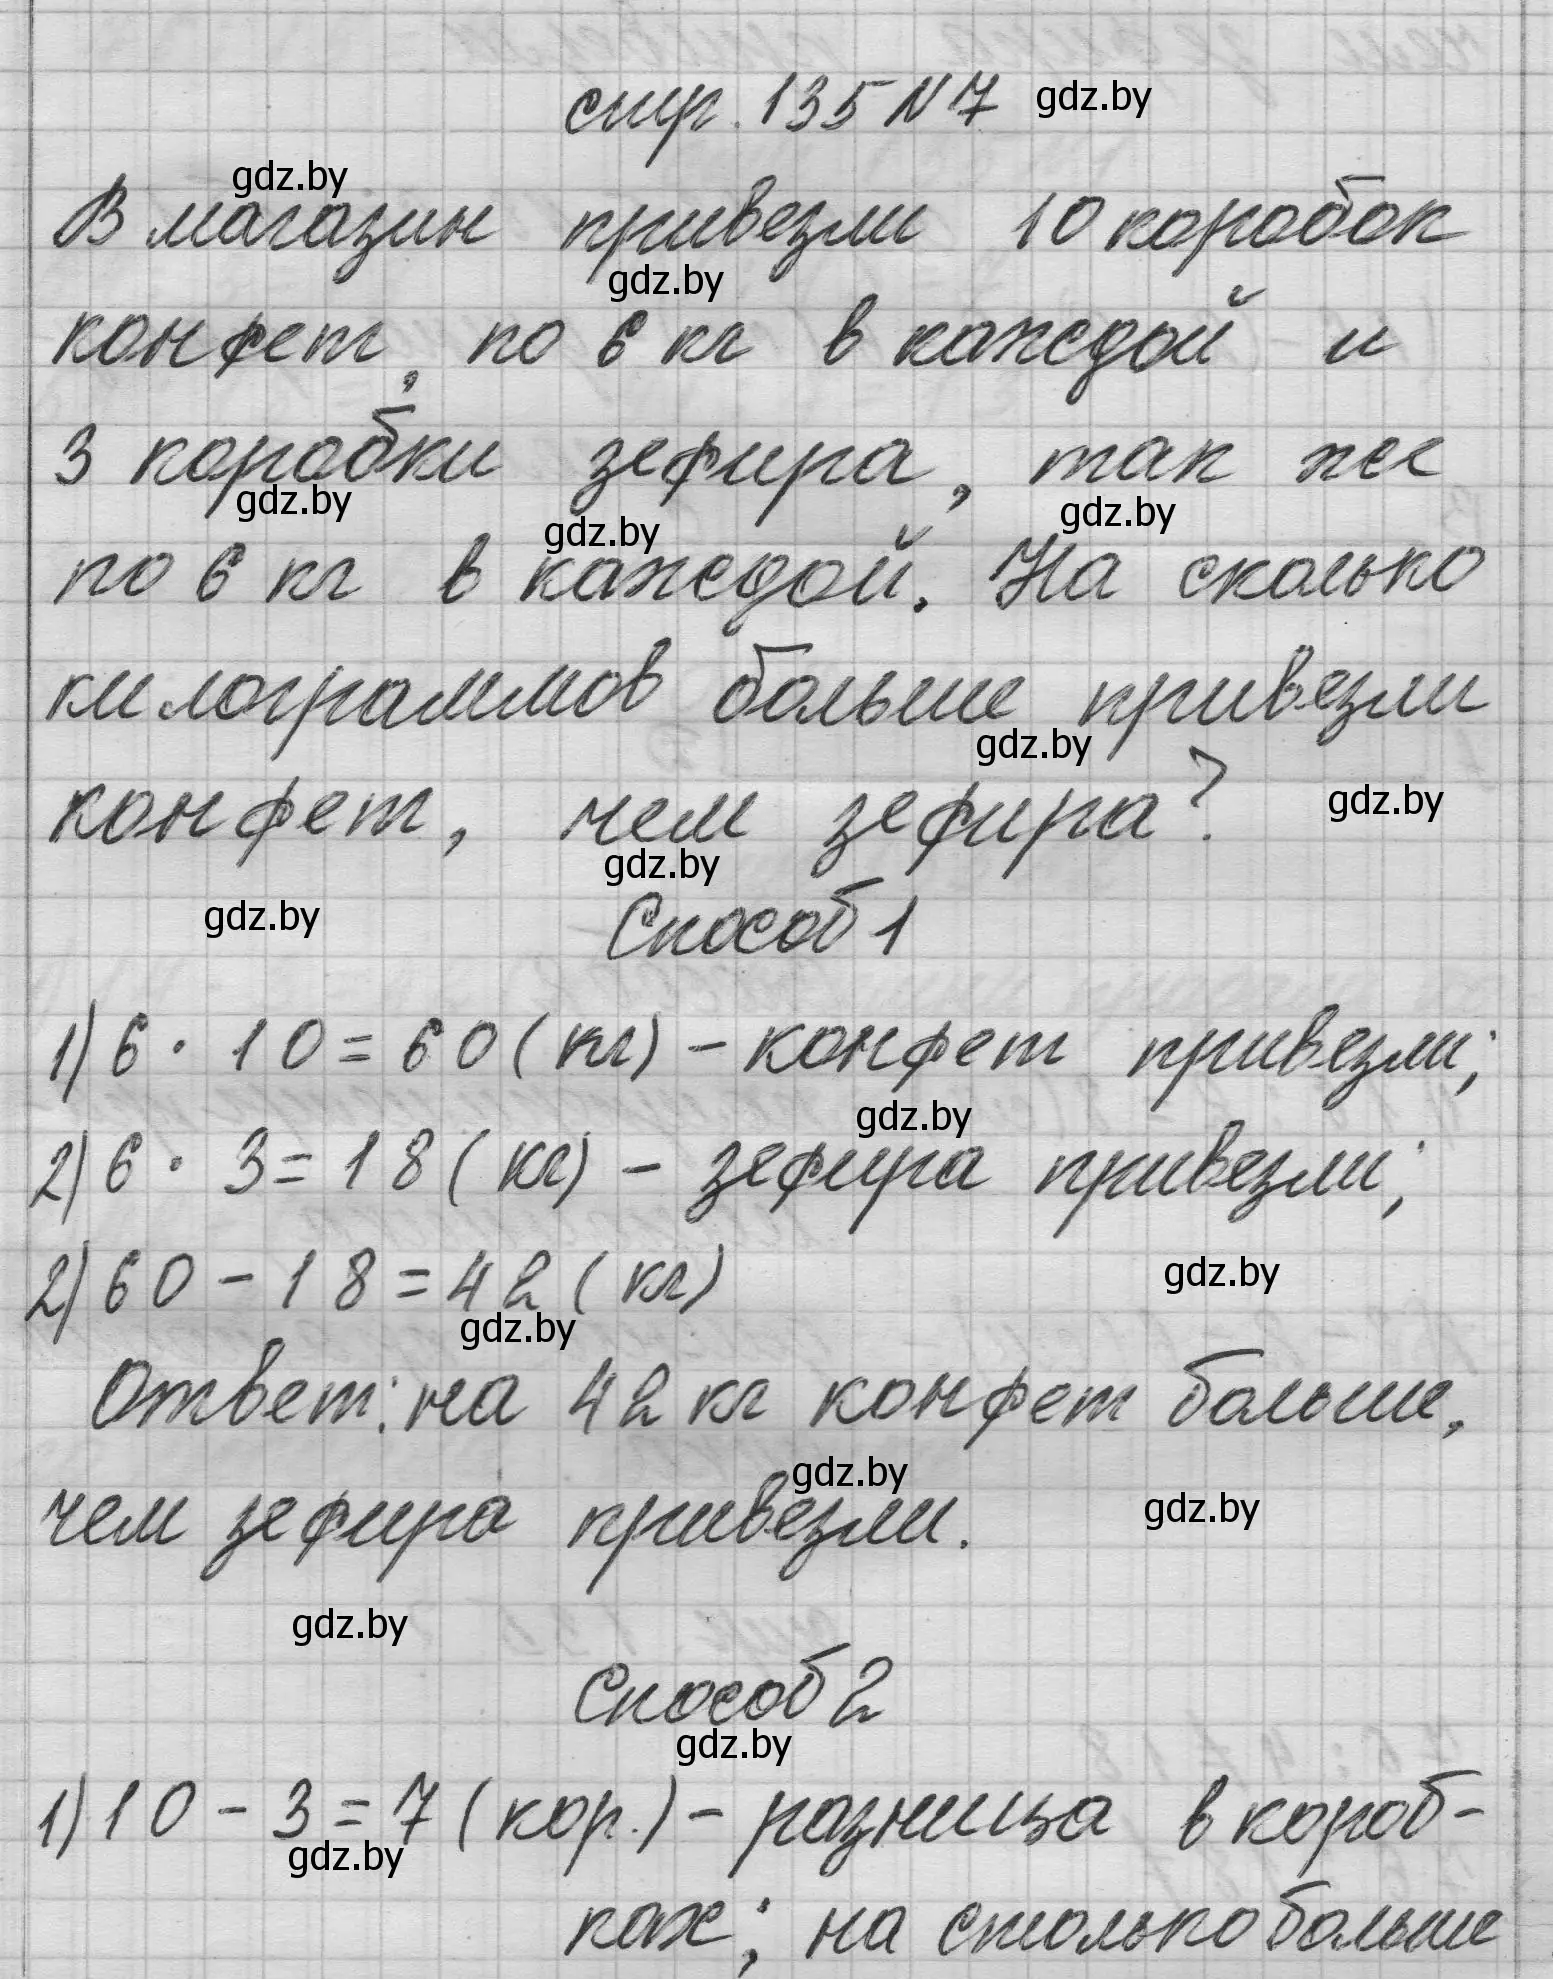 стр. 135 N 7 gdz.by
gdz.by
В магазин привезли 10 коробок
gdz.by
конфет, по 6 кг в каждой и
3 коробки зефира, так же
gdz.by gdz.by gdz.by
по 6 кг в каждой. На сколько
килограммов больше привезли
gdz.by
конфет, чем зефира? gdz.by
gdz.by
gdz.by Способ 1
1) 6 · 10 = 60 (кг) - конфет привезли;
gdz.by
2) 6 · 3 = 18 (кг) - зефира привезли;
2) 60 - 18 = 42 (кг) gdz.by
gdz.by
Ответ: на 42 кг конфет больше,
gdz.by
чем зефира привезли. gdz.by
gdz.by
Способ 2
gdz.by
1) 10 - 3 = 7 (кор.) - разница в короб-
gdz.by
ках; на столько больше